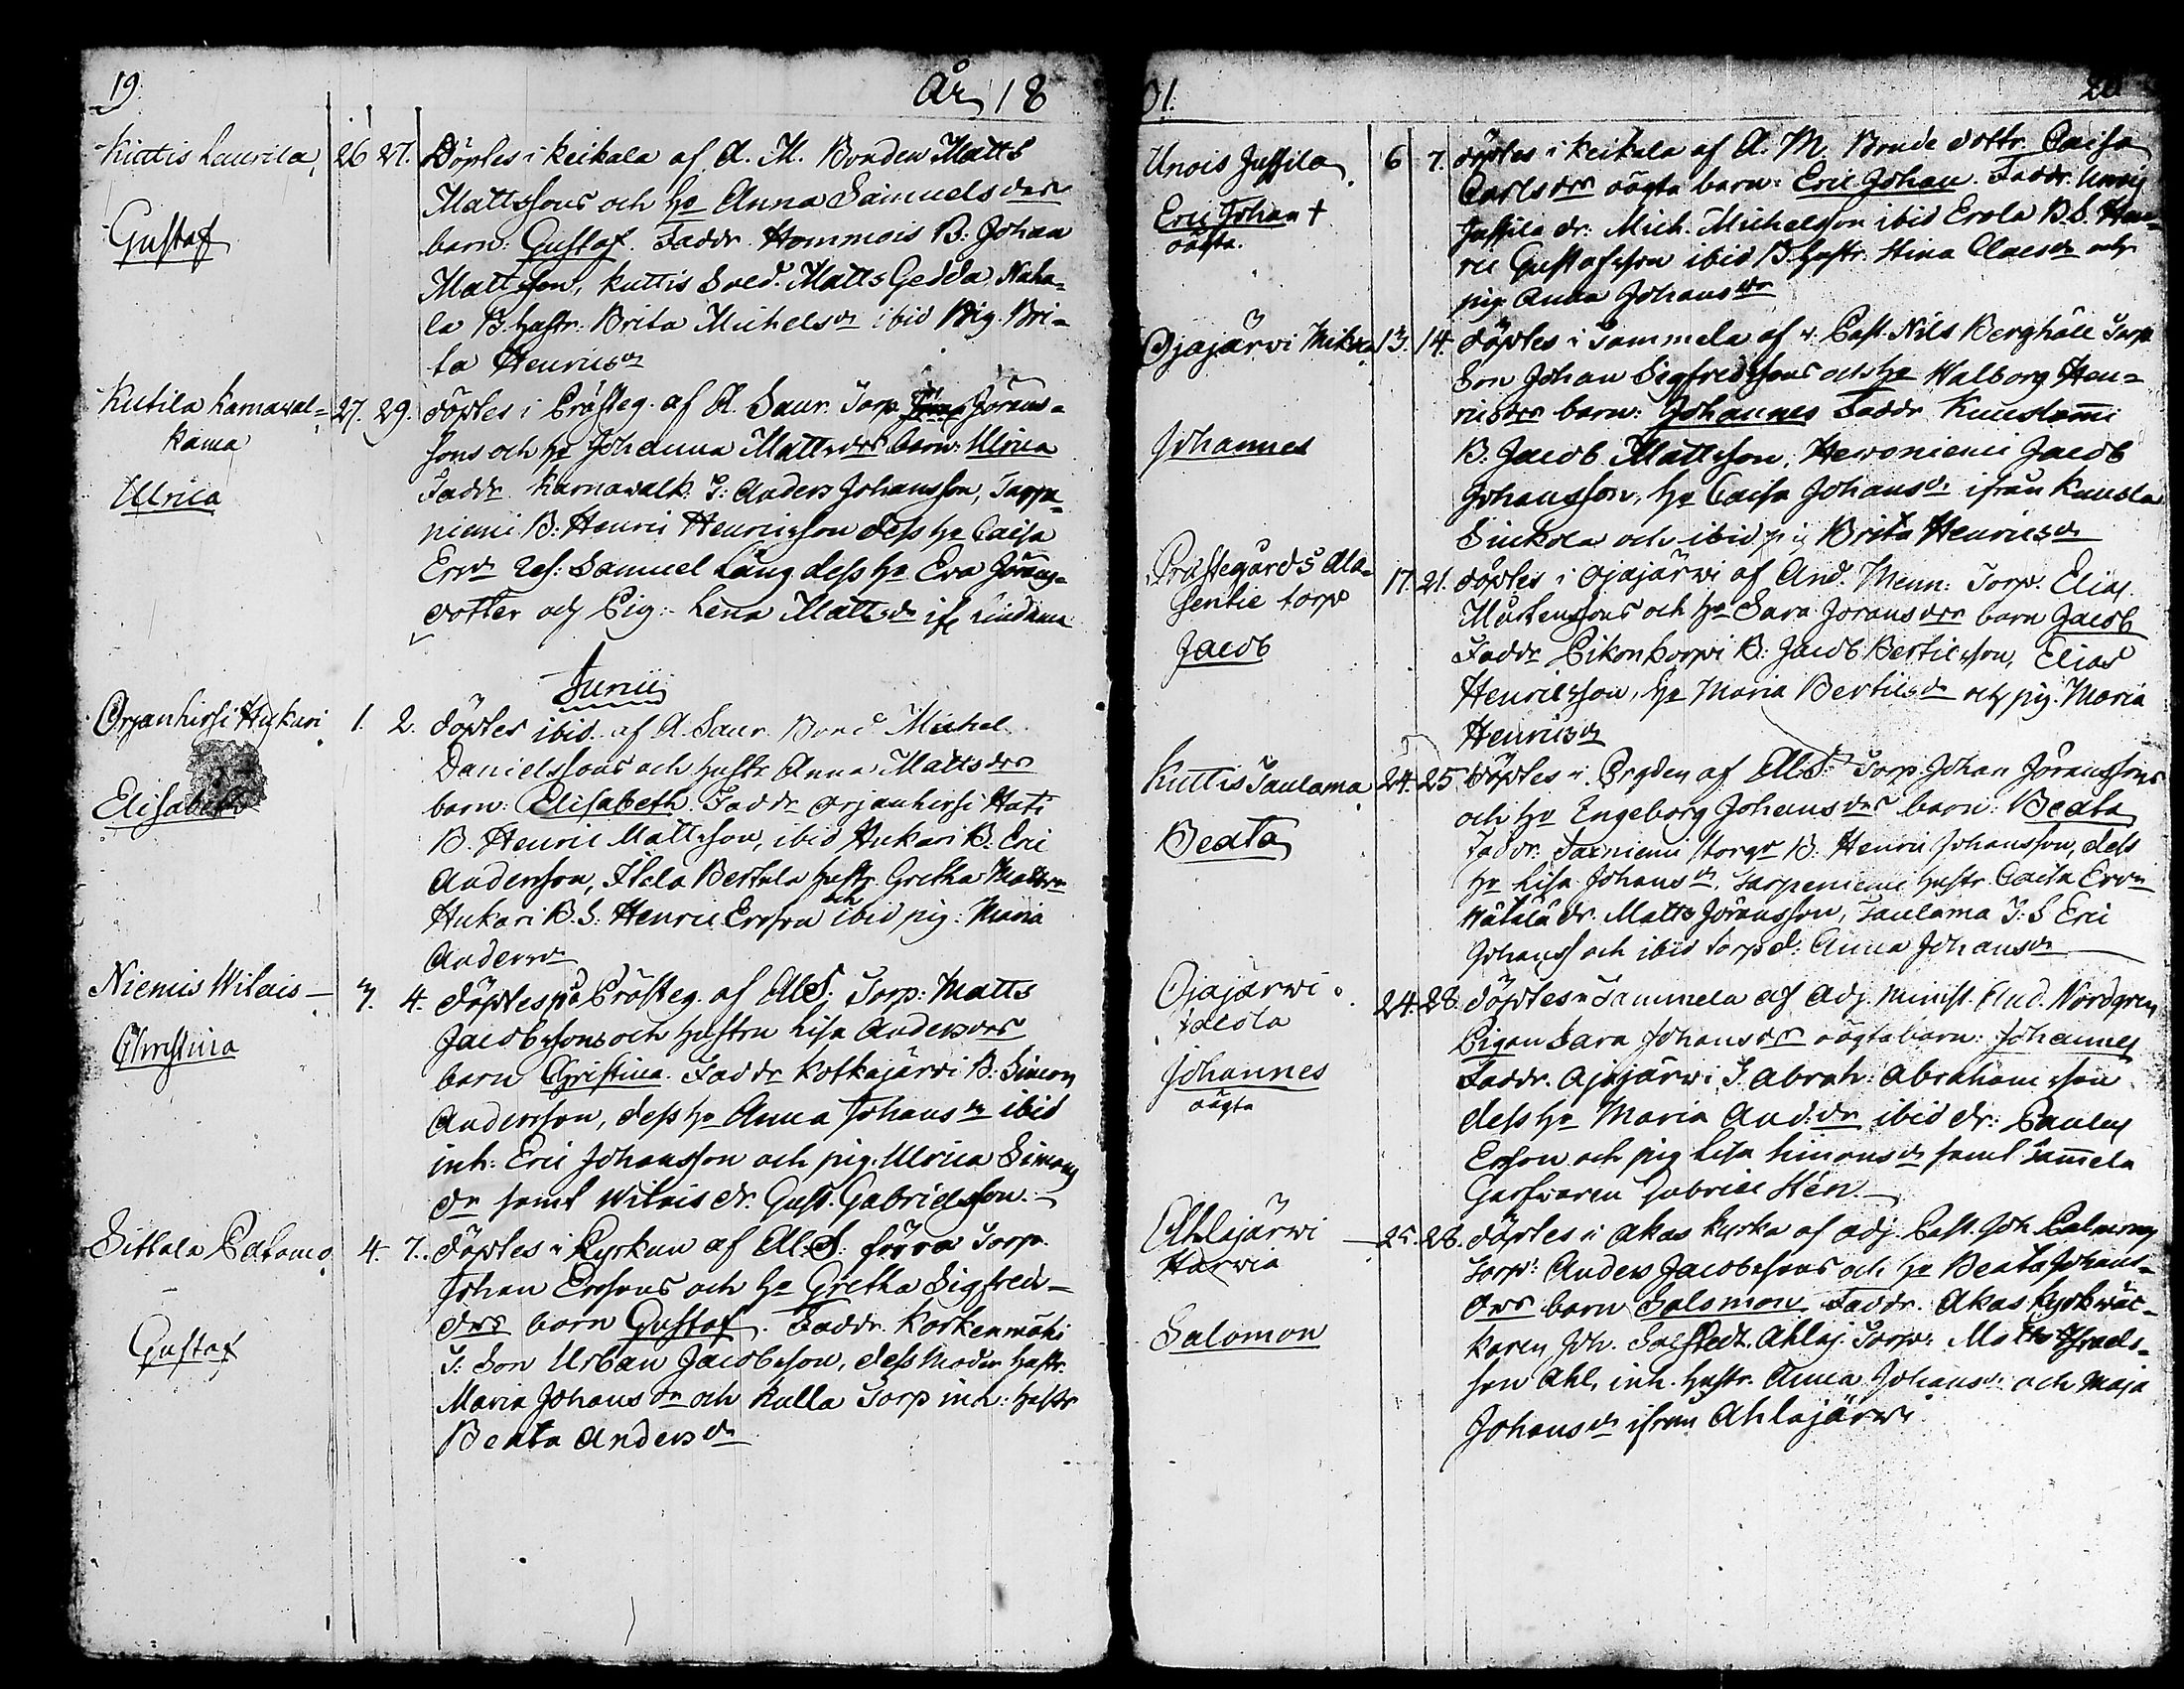 19.
År 18
Kuttis Laurila
26 27. Döptes i Keikala af A. M. Bonden Matts
Mattssons och H:o Anna Samuelsdrs
Gustaf
barn: Gustaf. Faddr. Hommois B: Johan
Mattsson, Kuttis Sold. Matts Gedda, Naha=
la B. Hustr: Brita Michelsdr ibid Pig. Bri=
ta Henricsdr
Kutila Karnawal=
kama
27. 29. döptes i Prästeg. af A. Saur. Torp. Jörans=
sons och H:o Johanna Mattsdrs barn: Ulrica
Ulrica
Faddr. Karnawalk. T: Anders Johansson, Tarpa=
niemi B: Henric Henricsson dess H:o Caisa
Ersdr Res: Samuel Lång dess H:o Eva Jörans=
dotter och Pig: Lena Mattsdr
Junii
Orjanhirsi Hukari
1. 2. döptes ibid. af A. Saur. Bond. Michel
Danielssons och Hustr Anna Mattsdrs
Elisabeth
barn: Elisabeth. Faddr Orjanhirsi Hati
B. Henric Mattsson, ibid Hukari B: Eric
Andersson, Illola Bertula Hustr. Gretha Mattsdr
Hukari B. S: Henric Ersson och ibid pig: Maria
Andersdr
Niemis Wilais
3. 4. döptes på Prästeg. af A.S. Torp: Matts
Jacobssons och Hustru Lisa Andersdrs
Christina
barn Christina. Faddr Kotkajärvi B: Simon
Andersson, dess H:o Anna Johansdr ibid
inh: Eric Johansson och pig. Ulrica Simons
dr samt Wilais dr. Gust. Gabrielsson.
Sittala Patamo
4. 7. döptes i Kyrkan af A.S: förra Torp.
Johan Erssons och H:o Gretha Sigfreds-
Gustaf
drs barn Gustaf. Faddr. Korkenmäki
T: Son Urban Jacobsson, dess Moder Hustr.
Maria Johansdr och Kulla Torp inh: Hustr
Beata Andersdr
01.
20
Unois Jussila
Eric Johan †
oägta.
6 7. döptes i Keikala af A. M. Bonde dottr. Caisa
Carlsdrs oägta barn: Eric Johan. Faddr. Unois
Jussila dr: Mich. Michelsson ibid Erola B.S. Hen=
ric Gustafsson ibid B. Hustr. Stina Claesdr och
pig. Anna Johansdr
Ojajärwi Mikola
13. 14. döptes i Tammela af v. Past. Nils Berghäll Torp.
Son Johan Segfredssons och H:o Walborg Hen=
ricsdrs barn: Johannes Faddr Kuuslammi
Johannes
B. Jacob Mattsson, Hewoniemi Jacob
Johansson, H:o Caisa Johansdr ifrån Kuusla
Sinkola och ibid pig Brita Henricsdr
Prästegårds Ala=
Jentie torp
Jacob
17. 21. döptes i Ojajärwi af And. Menn: Torp. Elias
Mårtenssons och H:o Sara Joransdrs barn Jacob
Faddr Pikonkorpi B: Jacob Bertilsson, Elias
Henricsson, H:o Maria Bertilsdr och pig. Maria
Henricsdr
Kuttis Taulama
24. 25 döptes i Bryden af A.S: Torp. Johan Jöranssons
och H:o Engeborg Johansdrs barn: Beata
Beata
Faddr: Torp B. Henric Johansson, dess
H:o Lisa Johansdr, Tarpeniemi Hustr. Caisa Ersdr
Wätälä dr. Matts Jöransson, Taulama T: S Eric
Johanss och ibid torpd: Anna Johansdr
Ojajärwi
Jacola
24. 28. döptes i Tammela af Adj. Minist. And. Nordgren
Pigan Sara Johansdrs oägta barn: Johannes
Johannes
oägta
Faddr. Ojajärwi T. Abrah: Abrahamsson
dess H:o Maria And:dr ibid dr: Paulus
Ersson och pig Lisa Simonsdr samt Tam̄ela
Garfvaren Gabriel Stén.
Ahlajärwi
Harwia
25. 28. döptes i Akas Kyrka af adj. Past. Joh. Palmroos
Torp: Anders Jacobssons och H:o Beata Johans=
drs barn Salomon Faddr. Akas Kyrkwäc-
Salomon
karen Joh. Salstedt, Ahlaj. Torp: Matts Israels=
son Ahl. inh. Hustr. Anna Johansdr och Maja
Johansdr ifrån Ahlajärwi